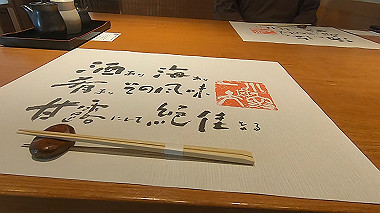 酒あり 海あり
肴あり その風味
甘露にして 絶佳なる